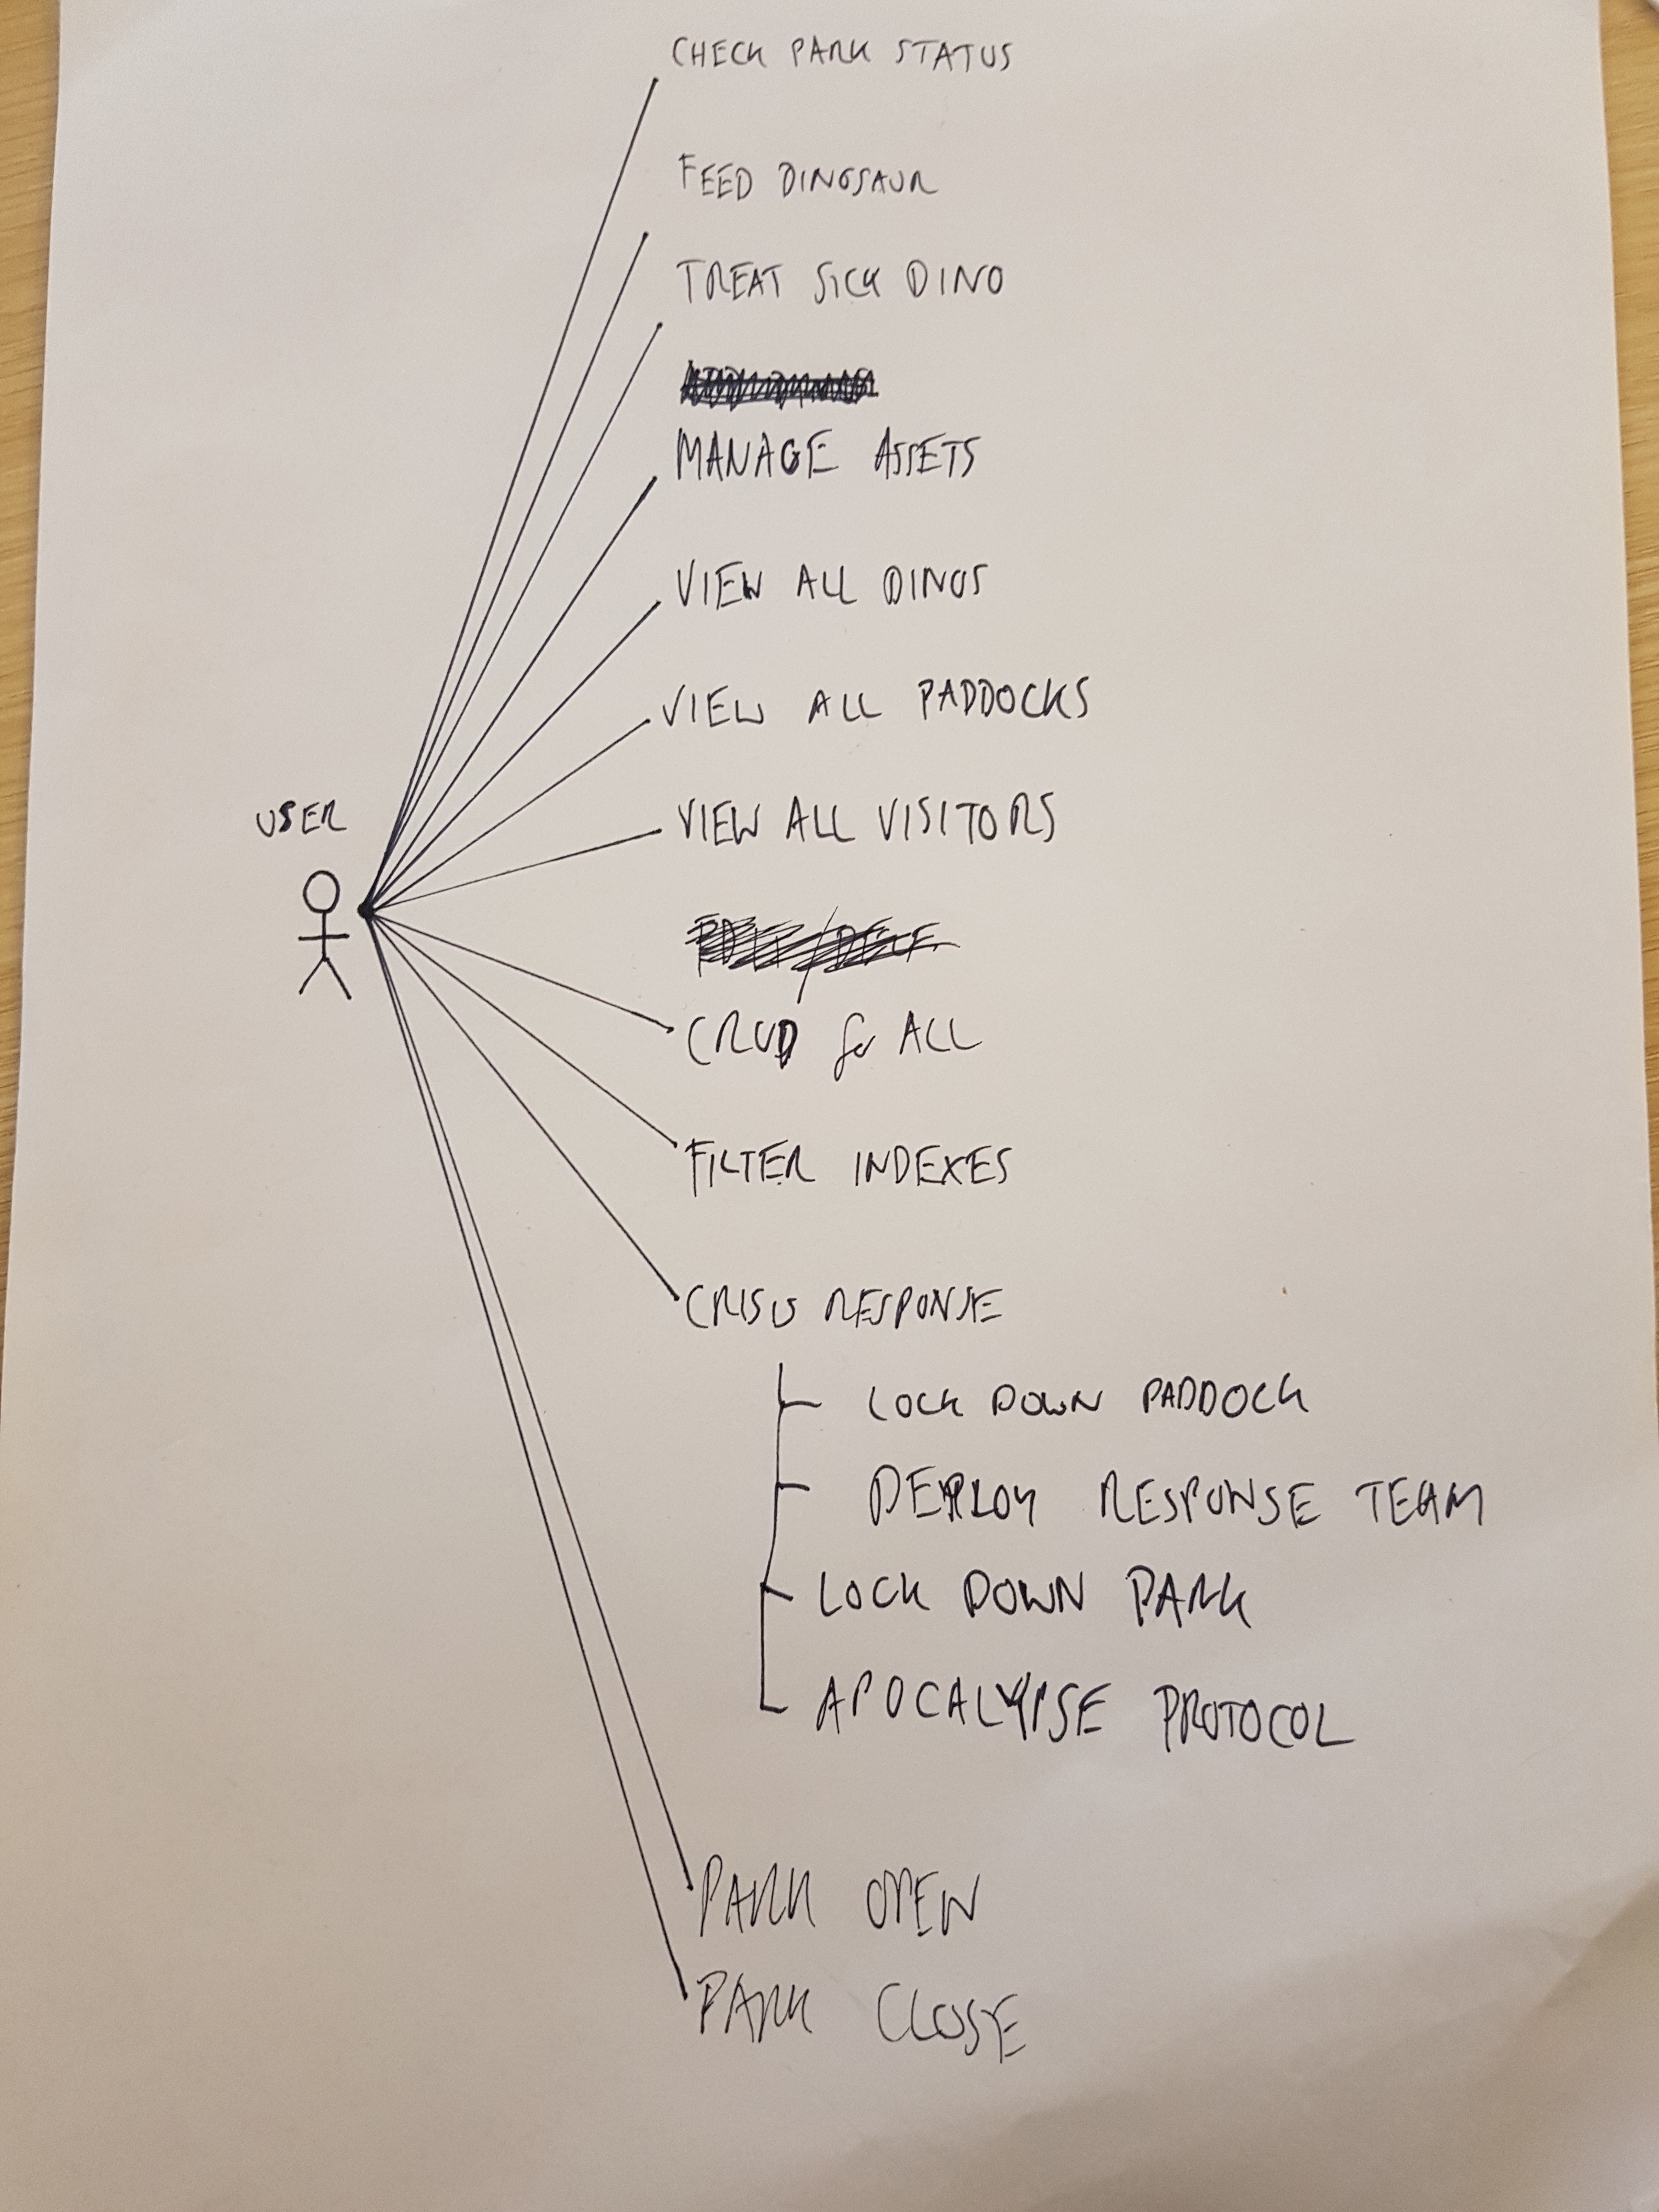 CHECK PARK STATUS
FEED DINOSAUR
TREAT SICK DINO
MANAGE ASSETS
VIEW ALL DINOS
VIEW ALL PADDOCKS
USER
VIEW ALL VISITORS
CRUD for ALL
FILTER INDEXES
CRISIS RESPONSE
LOCK DOWN PADDOCK
DEPLOY RESPONSE TEAM
LOCK DOWN PARK
APOCALYPSE PROTOCOL
PARK OPEN
PARK CLOSE